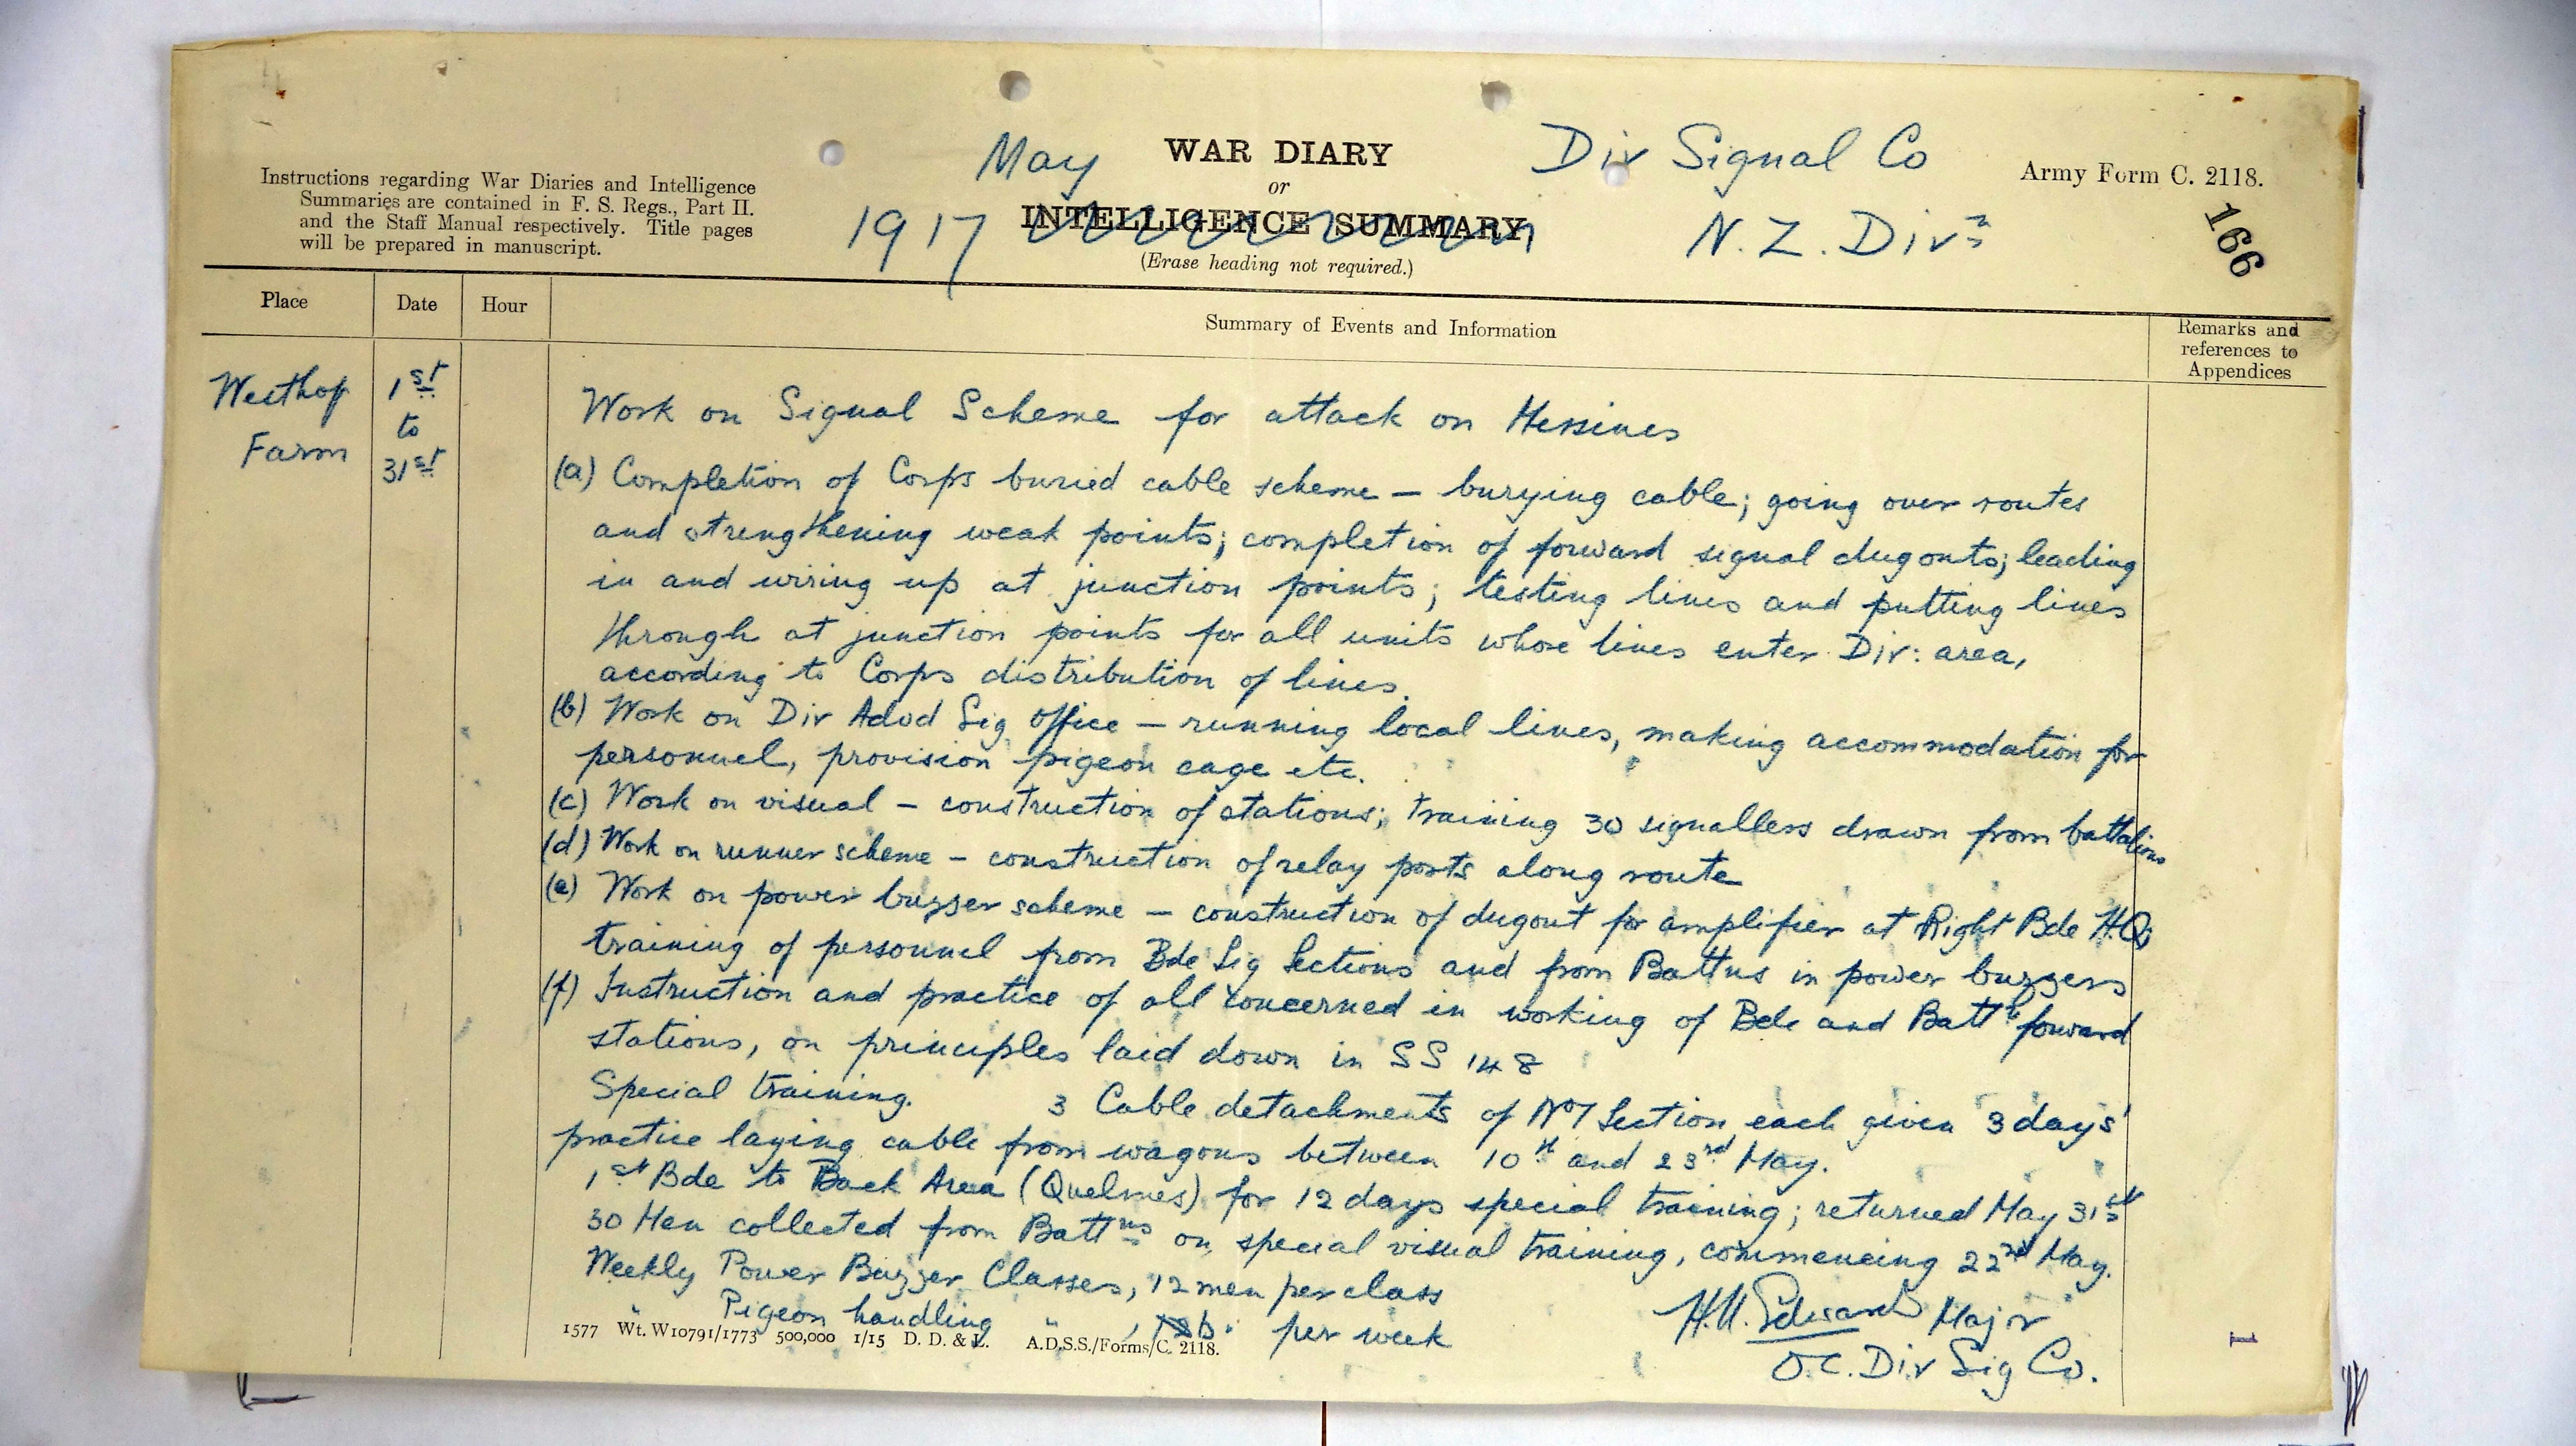 May WAR DIARY Div Signal Co
Army Form C. 2118.
or
1917 INTELLIGENCE SUMMARY N. Z. Divn
(Erase heading not required.)
166
Instructions regarding War Diaries and Intelligence
Summaries are contained in F. S. Regs., Part II.
and the Staff Manual respectively. Title pages
will be prepared in manuscript.
Place Date Hour Summary of Events and Information Remarks and
references to
Appendices
Westhof 1st
to
Farm 31st
Work on Signal Scheme for attack on Messines
(a) Completion of Corps buried cable scheme — burying cable; going over routes
and strengthening weak points; completion of forward signal dugouts; leading
in and wiring up at junction points; testing lines and putting lines
through at junction points for all units whose lines enter Div: area,
according to Corps distribution of lines.
(b) Work on Div Advd Sig Office — running local lines, making accommodation for
personnel, provision pigeon cage etc.
(c) Work on visual — construction of stations; training 30 signallers drawn from battalions
(d) Work on runner scheme — construction of relay posts along route
(e) Work on power buzzer scheme — construction of dugout for amplifier at Right Bde H.Q;
training of personnel from Bde Sig Sections and from Battns in power buzzers
(f) Instruction and practice of all concerned in working of Bde and Battn forward
stations, on principles laid down in SS 148
Special training. 3 Cable detachments of No 1 Section each given 3 days'
practice laying cable from wagons between 10th and 23rd May.
1st Bde to Back Area (Quelmes) for 12 days special training; returned May 31st
30 Men collected from Battns on special visual training, commencing 22nd May.
Weekly Power Buzzer Classes, 12 men per class
" Pigeon handling " , per week
H.U. Edwards Major
O.C. Div Sig Co.
1577 Wt. W10791/1773 500,000 1/15 D. D. & L. A.D.S.S./Forms/C. 2118.
1